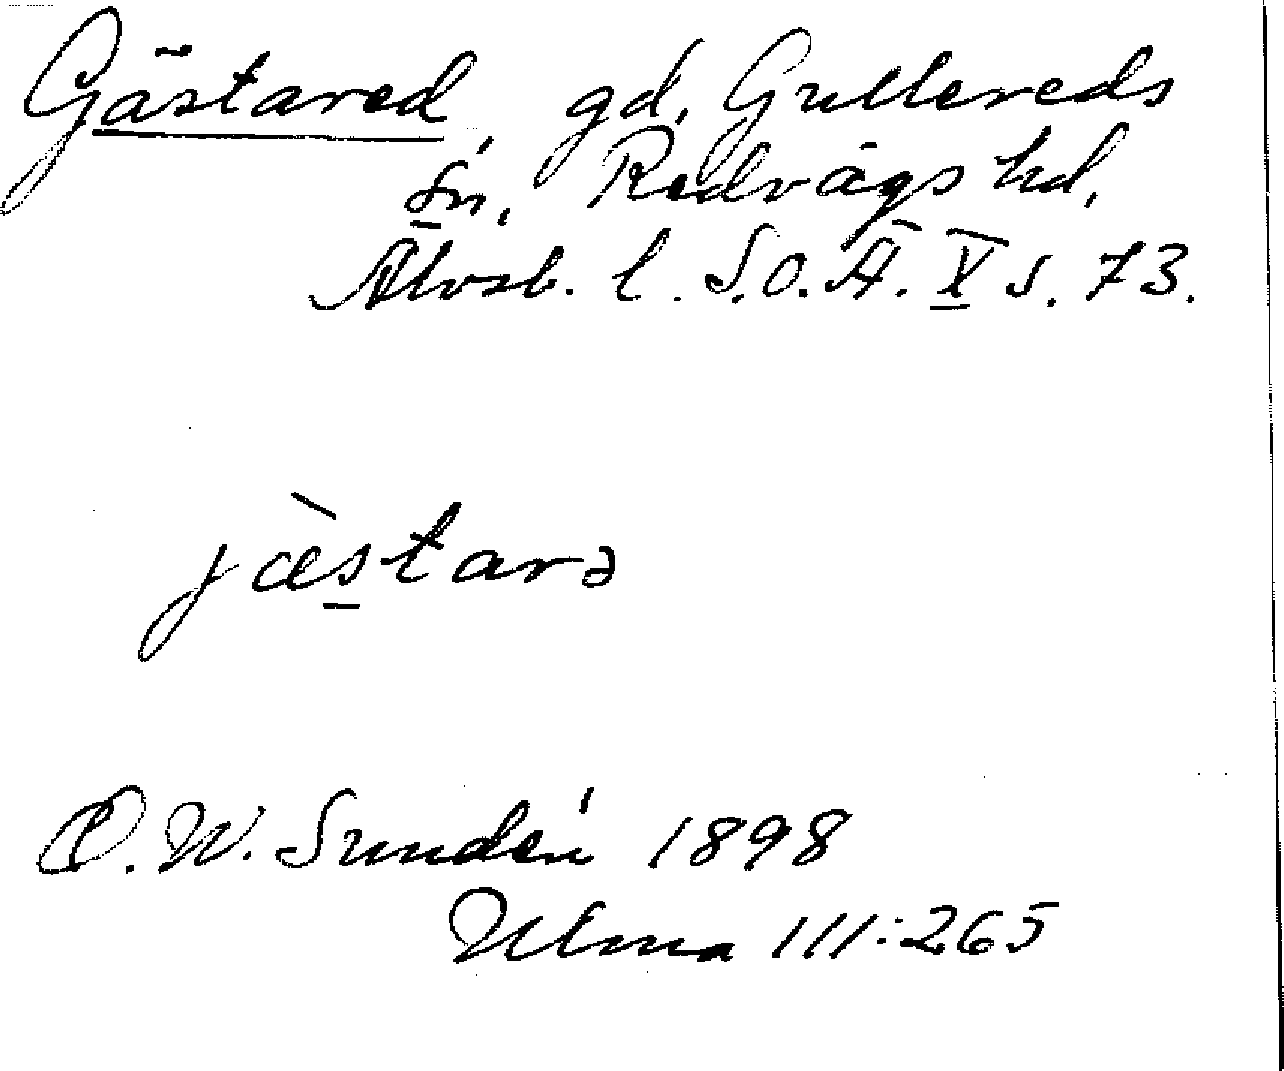 Gästared, gd, Gullereds
sn, Redvägs hd,
Älvsb. l. S.O.Ä. X s. 73.
jæ̀starə
D. W. Sundén 1898
Ulma 111:265